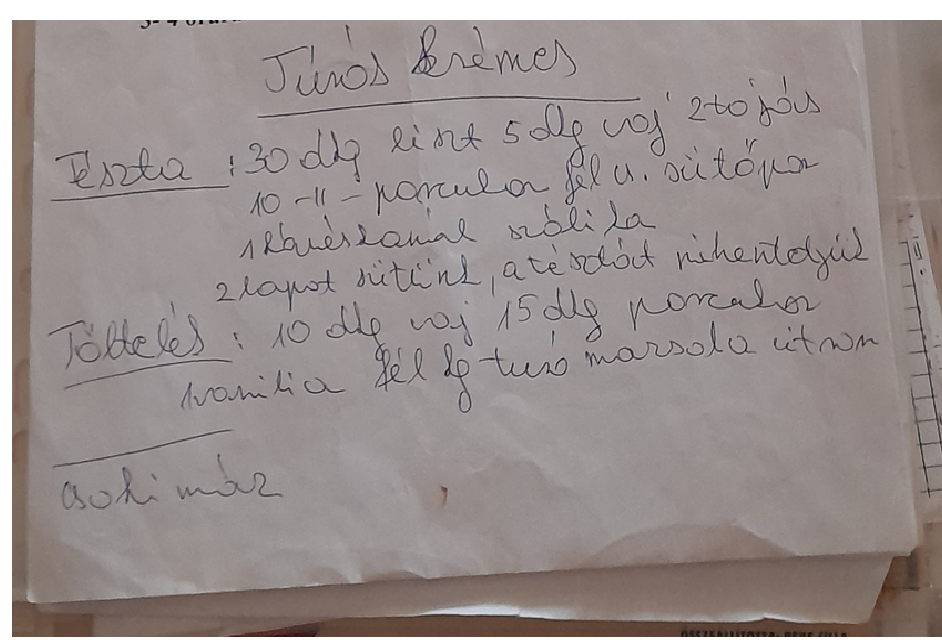 Túrós krémes
Tészta : 30 dkg liszt 5 dkg vaj 2 tojás
10 -"- porcukor fél u. sütőpor
1 kávéskanál szóli ka
2 lapot sütünk, a tésztát pihentetjük
Töltelés : 10 dkg vaj 15 dkg porcukor
1 vanilia fél kg turó mazsola citrom
csoki máz